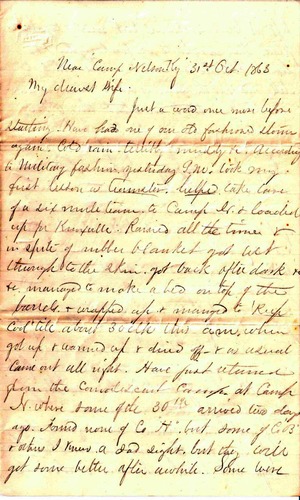 Near Camp Nelson Ky 31st Oct. 1863
My dearest Wife.
Just a word once more before
starting. Have had one of our old fashioned storms
again. Cold rain terribly muddy &c. According
to Military fashion, yesterday I took my
first lesson as teamster, helped take care
of a six mule team to Camp N. & loaded
up for Knoxville. Rained all the time &
in spite of rubber blanket got wet
through to the skin. got back after dark &
managed to make a bed on top of the
barrels & wrapped up & managed to "Keep
Cool" till about 3 o'clk this am, when
got up & warmed up & dried off & as usual
came out all right. Have just returned
from the Convalescent Camp at Camp
N. where some of the 30th arrived two days
ago. Found none of Co H. but some of Co B
& others I knew. a sad sight, but they will
get some better after awhile. Some were